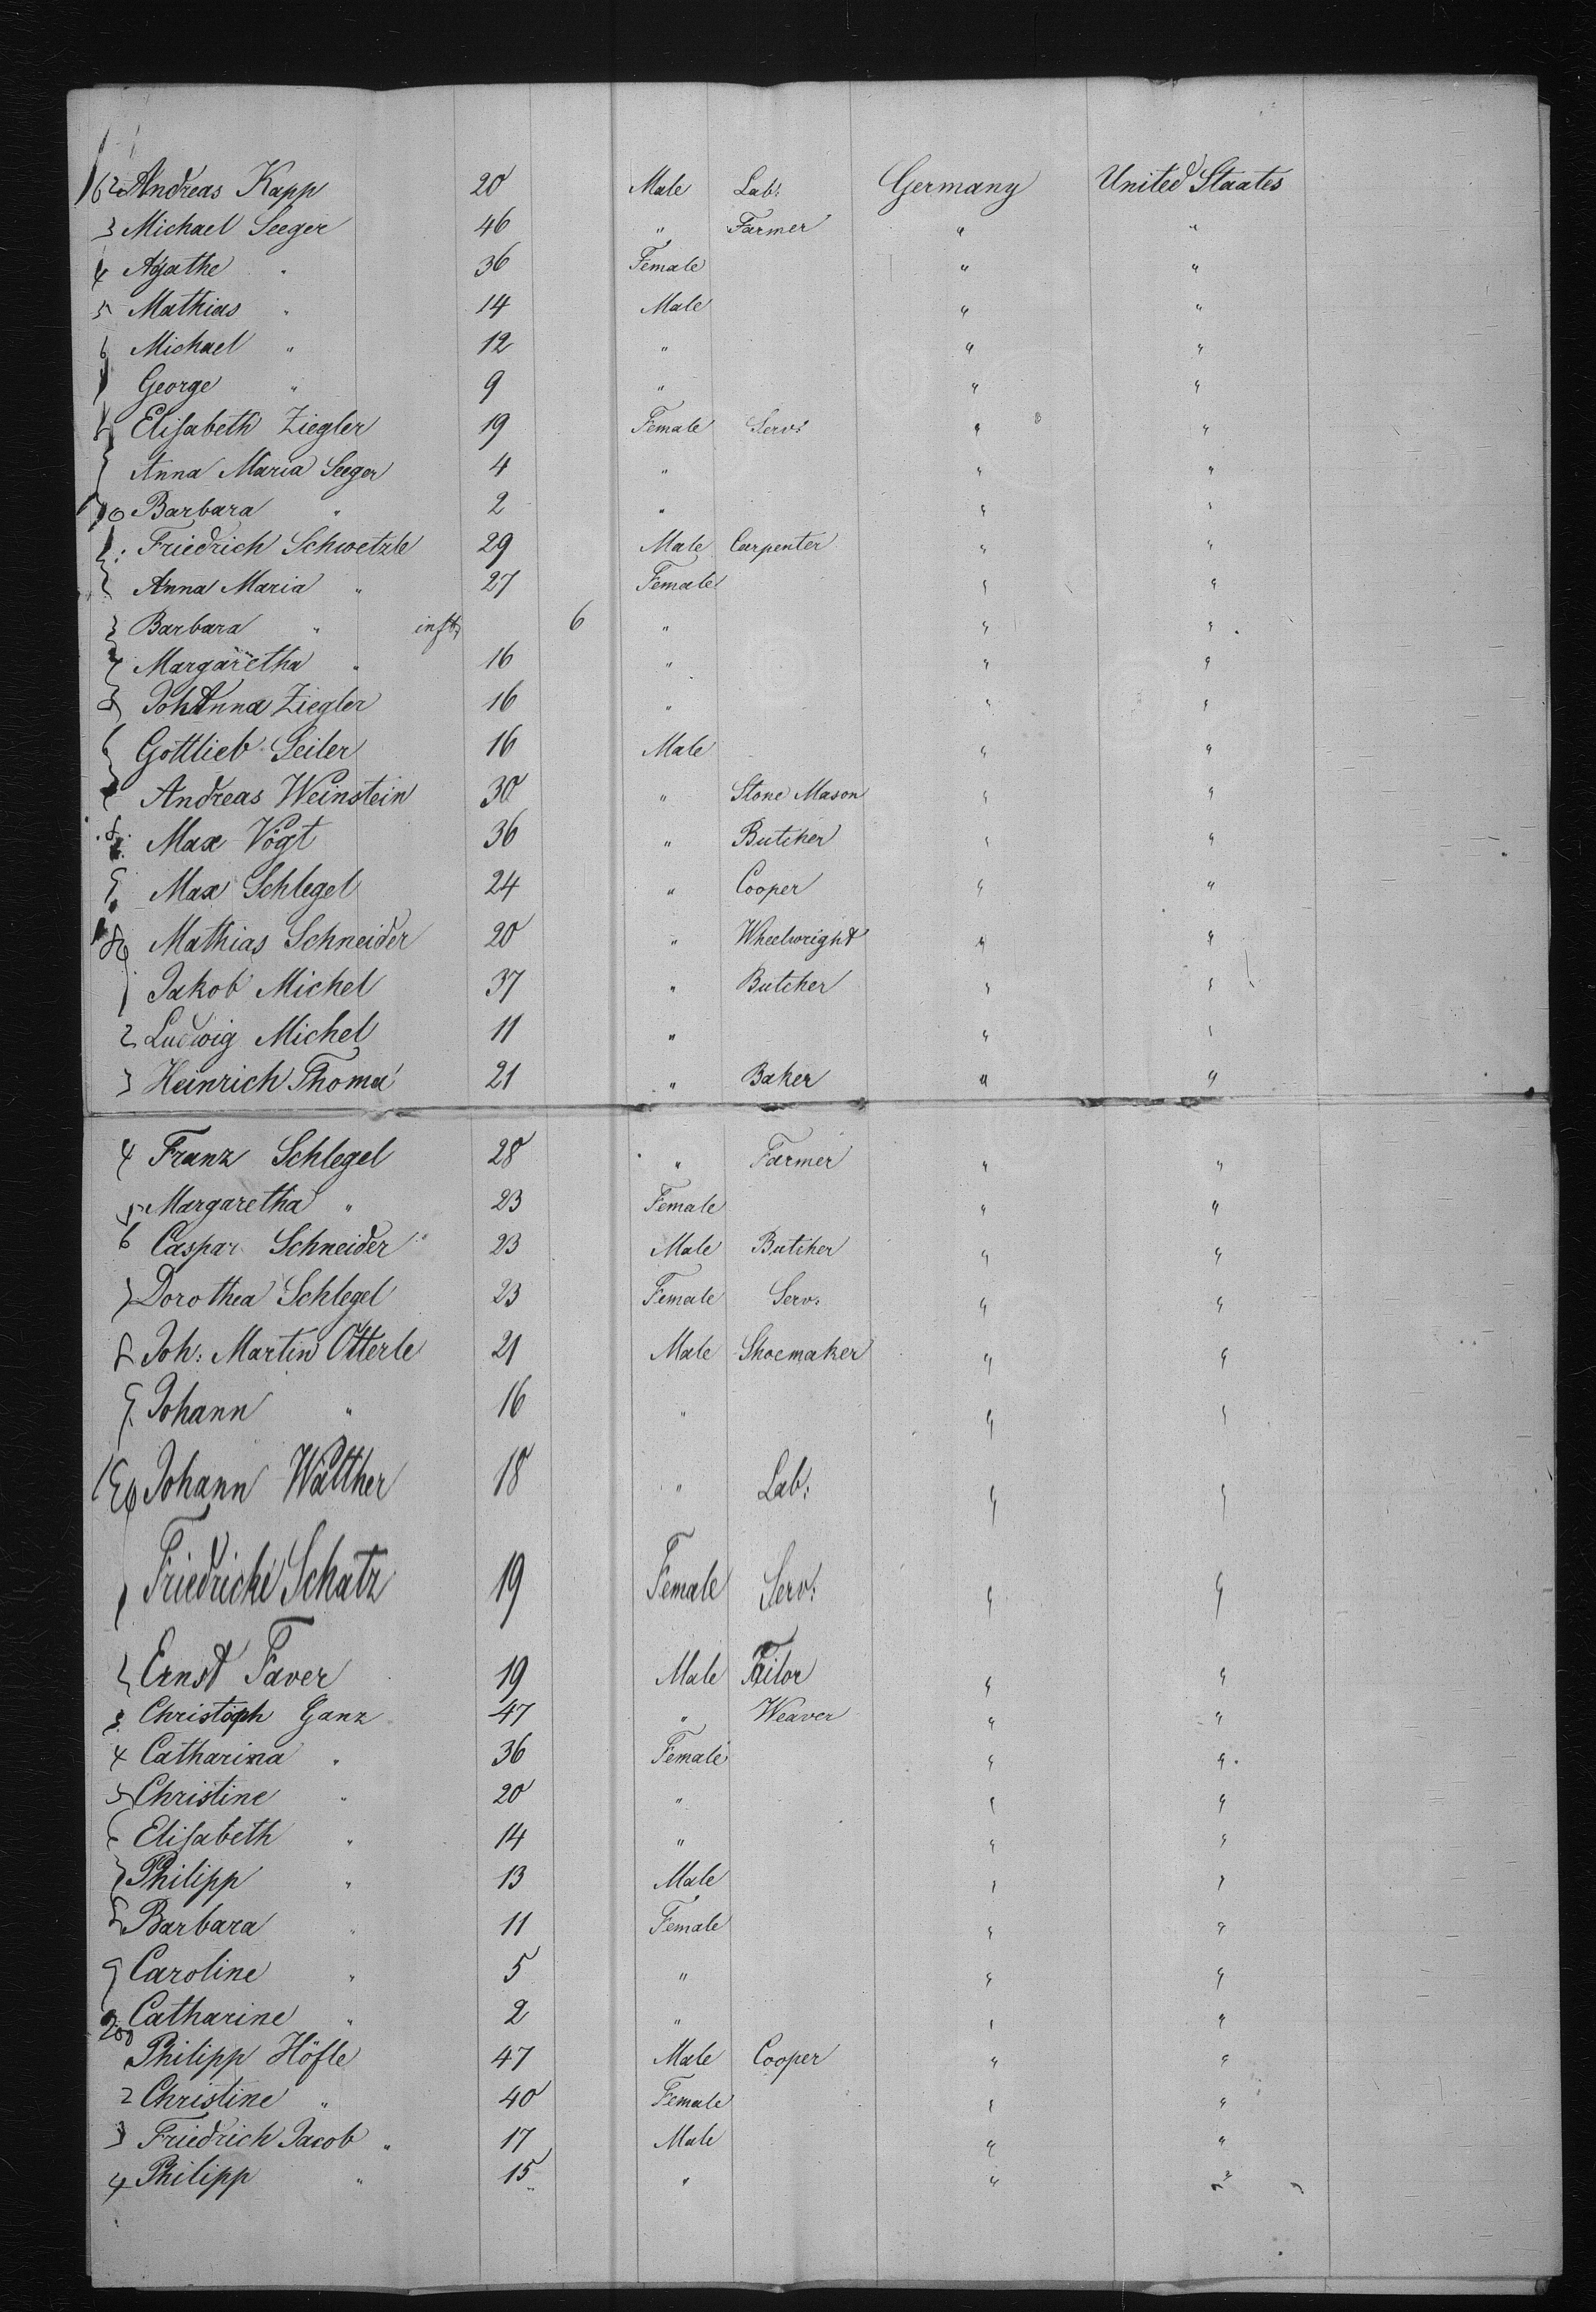 62 Andreas Kapp 20 Male Lab: Germany United Staates
3 Michael Seeger 46 " Farmer " "
4 Agathe " 36 Female " "
5 Mathias " 14 Male " "
6 Michael " 12 " " "
George " 9 " " "
Elisabeth Ziegler 19 Female Serv: " "
Anna Maria Seeger 4 " " "
70 Barbara " 2 " " "
Friedrich Schwetzle 29 Male Carpenter " "
Anna Maria " 27 Female " "
3 Barbara " inft 6 " " "
4 Margaretha " 16 " " "
5 JohAnna Ziegler 16 " " "
6 Gottlieb Seiler 16 Male " "
Andreas Weinstein 30 " Stone Mason " "
8 Max Vögt 36 " Butcher " "
9 Max Schlegel 24 " Cooper " "
80 Mathias Schneider 20 " Wheelwright " "
Jakob Michel 37 " Butcher " "
2 Ludwig Michel 11 " " "
3 Heinrich Thoma 21 " Baker " "
4 Franz Schlegel 28 " Farmer " "
5 Margaretha " 23 Female " "
6 Caspar Schneider 23 Male Butcher " "
7 Dorothea Schlegel 23 Female Serv: " "
8 Joh: Martin Otterle 21 Male Shoemaker " "
9 Johann " 16 " " "
190 Johann Walther 18 " Lab: " "
1 Friedricke Schatz 19 Female Serv: " "
2 Ernst Faver 19 Male Tailor " "
3 Christoph Ganz 47 " Weaver " "
4 Catharina " 36 Female " "
5 Christine " 20 " " "
6 Elisabeth " 14 " " "
7 Philipp " 13 Male " "
8 Barbara " 11 Female " "
9 Caroline " 5 " " "
200 Catharine " 2 " " "
Philipp Höfle 47 Male Cooper " "
2 Christine " 40 Female " "
3 Friedrich Jacob " 17 Male " "
4 Philipp " 15 " " "